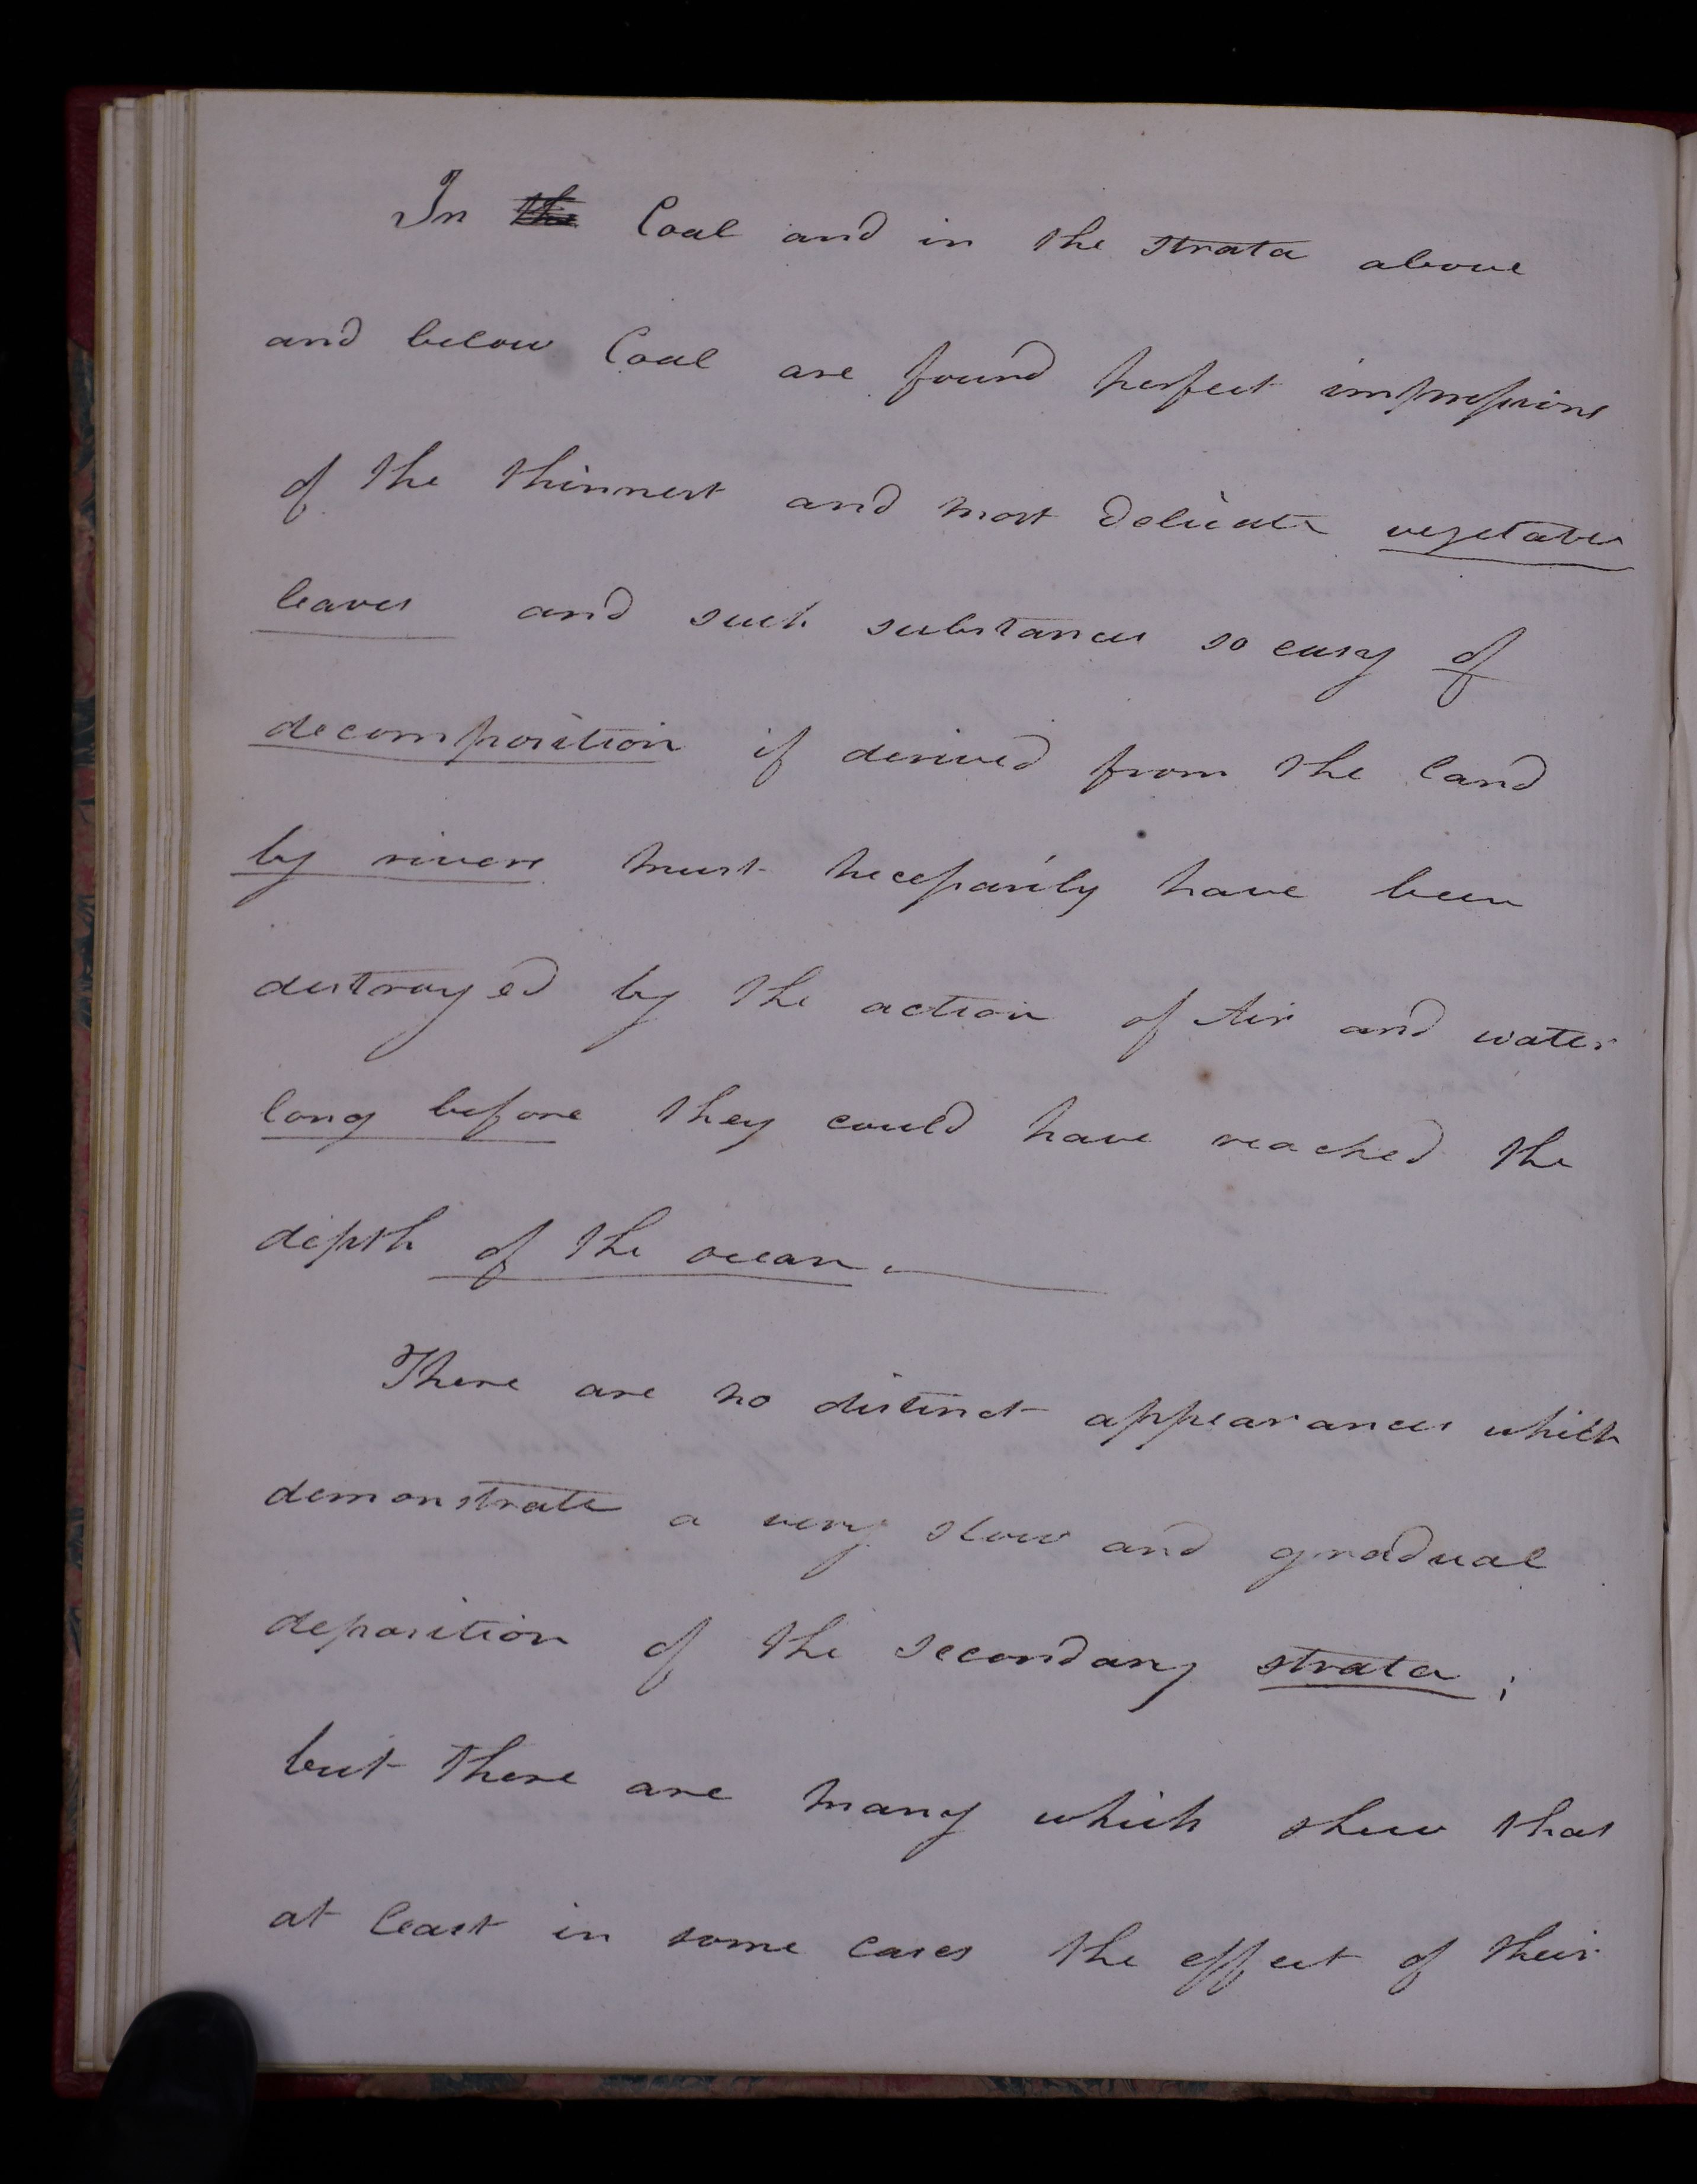 In the Coal and in the strata above
and below Coal are found perfect impressions
of the thinnest and most delicate vegetable
leaves and such substances so easy of
decomposition if derived from the land
by rivers must necessarily have been
destroyed by the action of Air and water
long before they could have reached the
depth of the ocean.
There are no distinct appearances which
demonstrate a very slow and gradual
deposition of the secondary strata;
but there are many which shew that
at least in some cases the effect of their